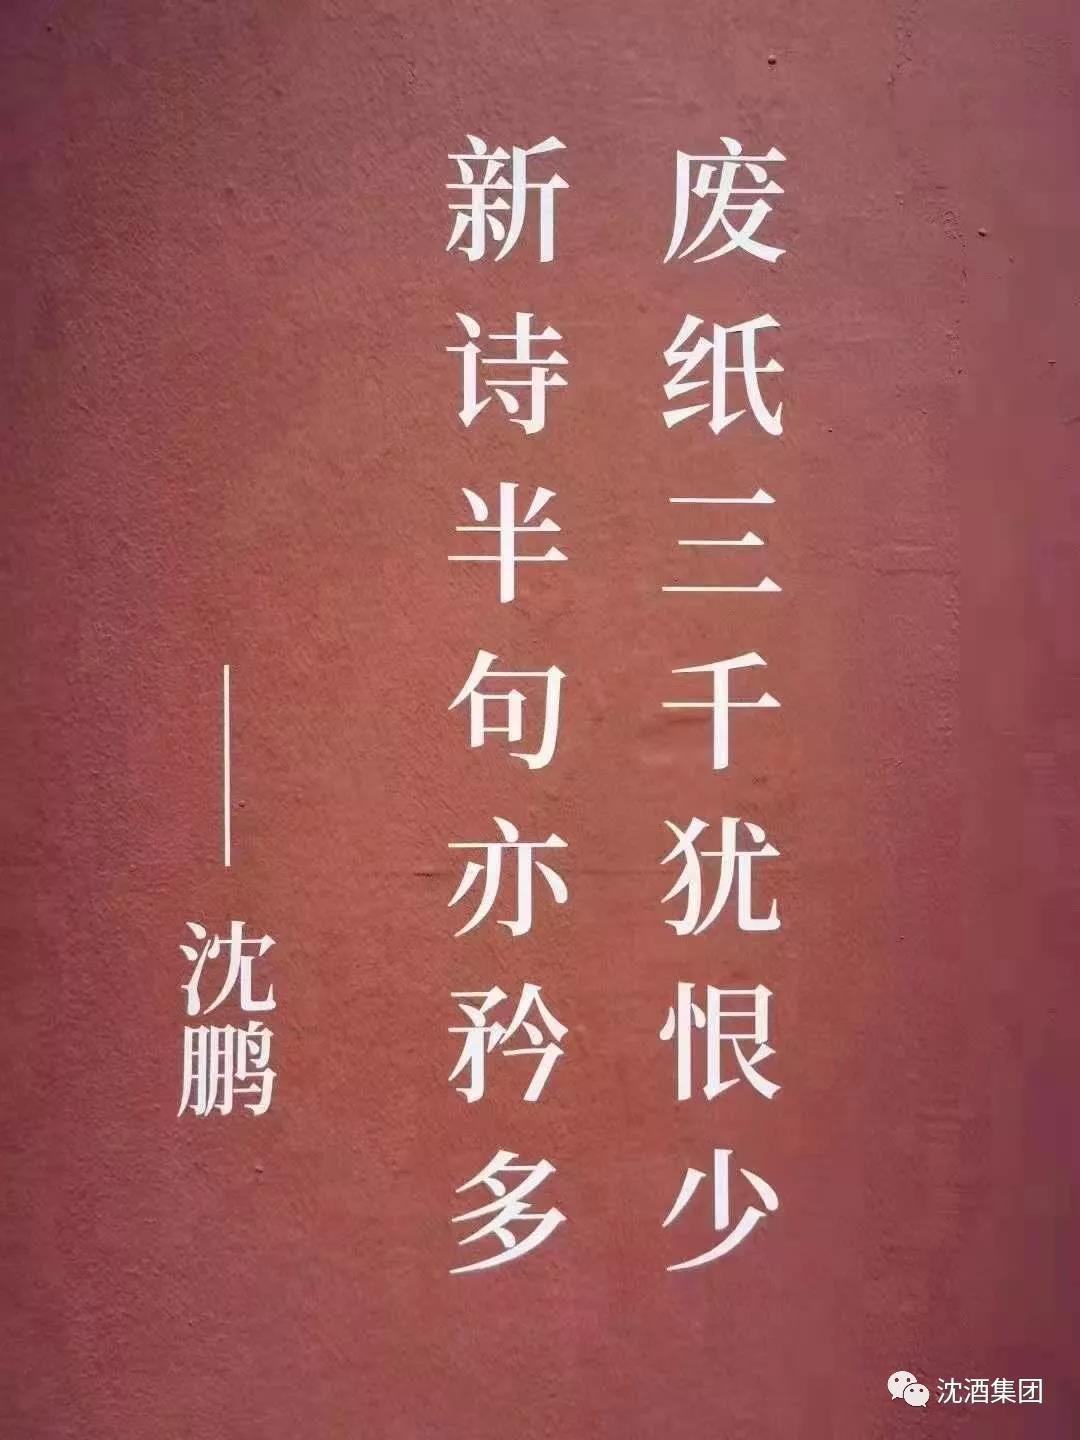 废纸三千犹恨少
新诗半句亦矜多
——沈鹏
沈酒集团